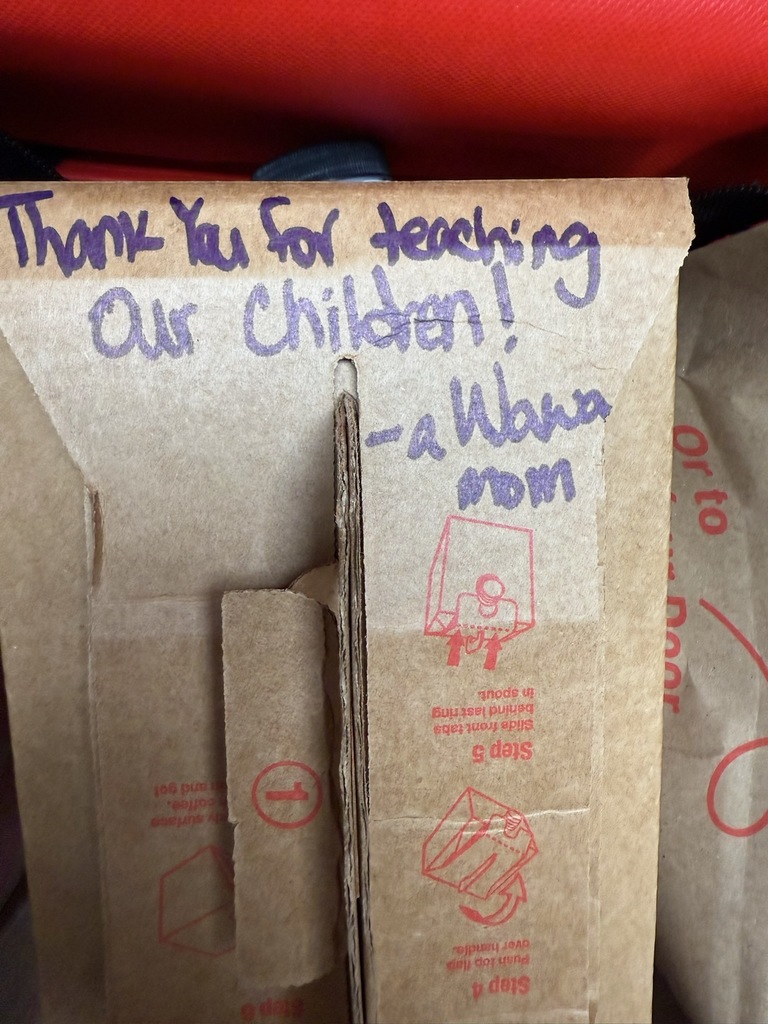 Thank You for teaching
Our Children!
-a Wawa
mom
or to
Door
Step 5
Slide front tabs
behind last ring
in spout.
Step 4
Push top flaps
over handle.
surface
coffee.
and get
Step 6